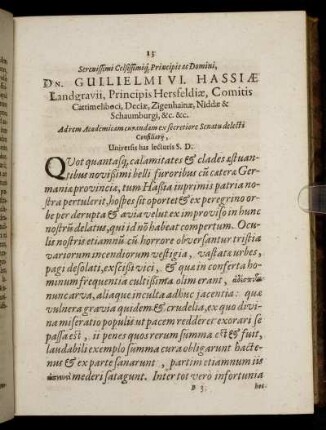 13
Serenissimi Celsissimiq́; Principis ac Domini,
DN. GUILIELMI VI. HASSIÆ
Landgravii, Principis Hersfeldiæ, Comitis
Cattimeliboci, Deciæ, Zigenhainæ, Niddæ &
Schaumburgi, &c. &c.
Ad rem Academicam curandam ex secretiore Senatu delecti
Consiliarij,
Universis has lecturis S. D.
QUot quantasq́; calamitates & clades æstuan-
tibus novißimi belli furoribus cũ cætera Ger-
mania provincia, tum Haßia inprimis patria no-
stra pertulerit, hospes sit oportet & ex peregrino or-
be per derupta & avia velut ex improviso in hunc
nostrũ delatus, qui id nõ habeat compertum. Ocu-
lis nostris etiamnũ cũ horrore observantur tristia
variorum incendiorum vestigia, vastatæ urbes,
pagi desolati, excisi vici, & quæ in conferta ho-
minum frequentia cultißima olim erant,
nunc arva, aliaque inculta adhuc jacentia: quæ
vulnera gravia quidem & crudelia, ex quo divi-
na miseratio populis ut pacem redderet exorari se
passa est, ii penes quos rerum summa est & fuit,
laudabili exemplo summa cura obligarunt hacte-
nus & ex parte sanarunt, partim etiamnum iis
mederi satagunt. Inter tot verò infortunia
B 3 hoc